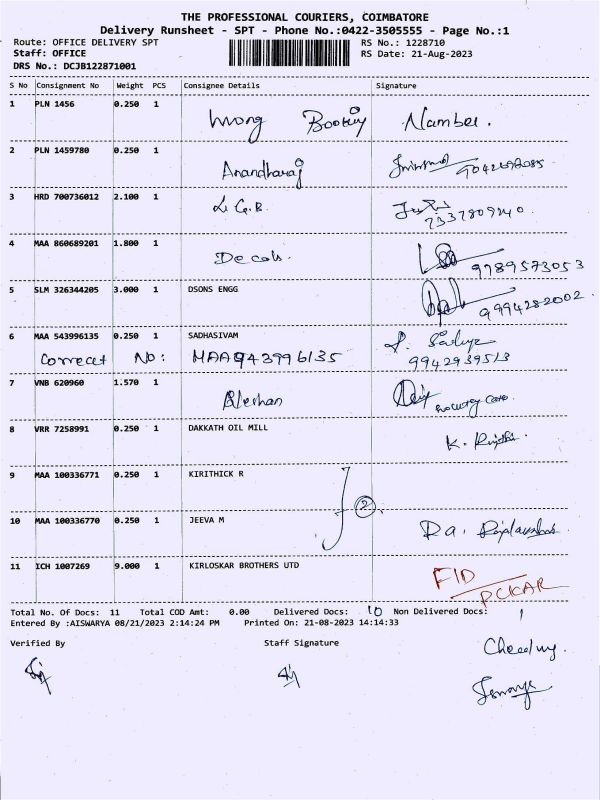 THE PROFESSIONAL COURIERS, COIMBATORE
Delivery Runsheet - SPT - Phone No.:0422-3505555 - Page No.:1
Route: OFFICE DELIVERY SPT RS No.: 1228710
Staff: OFFICE RS Date: 21-Aug-2023
DRS No.: DCJB122871001
S No Consignment No Weight PCS Consignee Details Signature
1 PLN 1456 0.250 1 Wrong Number.
2 PLN 1459780 0.250 1 Anandharaj
3 HRD 700736012 2.100 1 L.G.B.
4 MAA 860689201 1.800 1 Decols. 9789573053
5 SLM 326344205 3.000 1 DSONS ENGG 9994282002.
6 MAA 543996135 0.250 1 SADHASIVAM
Correct No: MAA943996135 9942939513
7 VNB 620960 1.570 1
8 VRR 7258991 0.250 1 DAKKATH OIL MILL K.
9 MAA 100336771 0.250 1 KIRITHICK R
2
10 MAA 100336770 0.250 1 JEEVA M
11 ICH 1007269 9.000 1 KIRLOSKAR BROTHERS UTD FID
Total No. Of Docs: 11 Total COD Amt: 0.00 Delivered Docs: 10 Non Delivered Docs: 1
Entered By :AISWARYA 08/21/2023 2:14:24 PM Printed On: 21-08-2023 14:14:33
Verified By Staff Signature